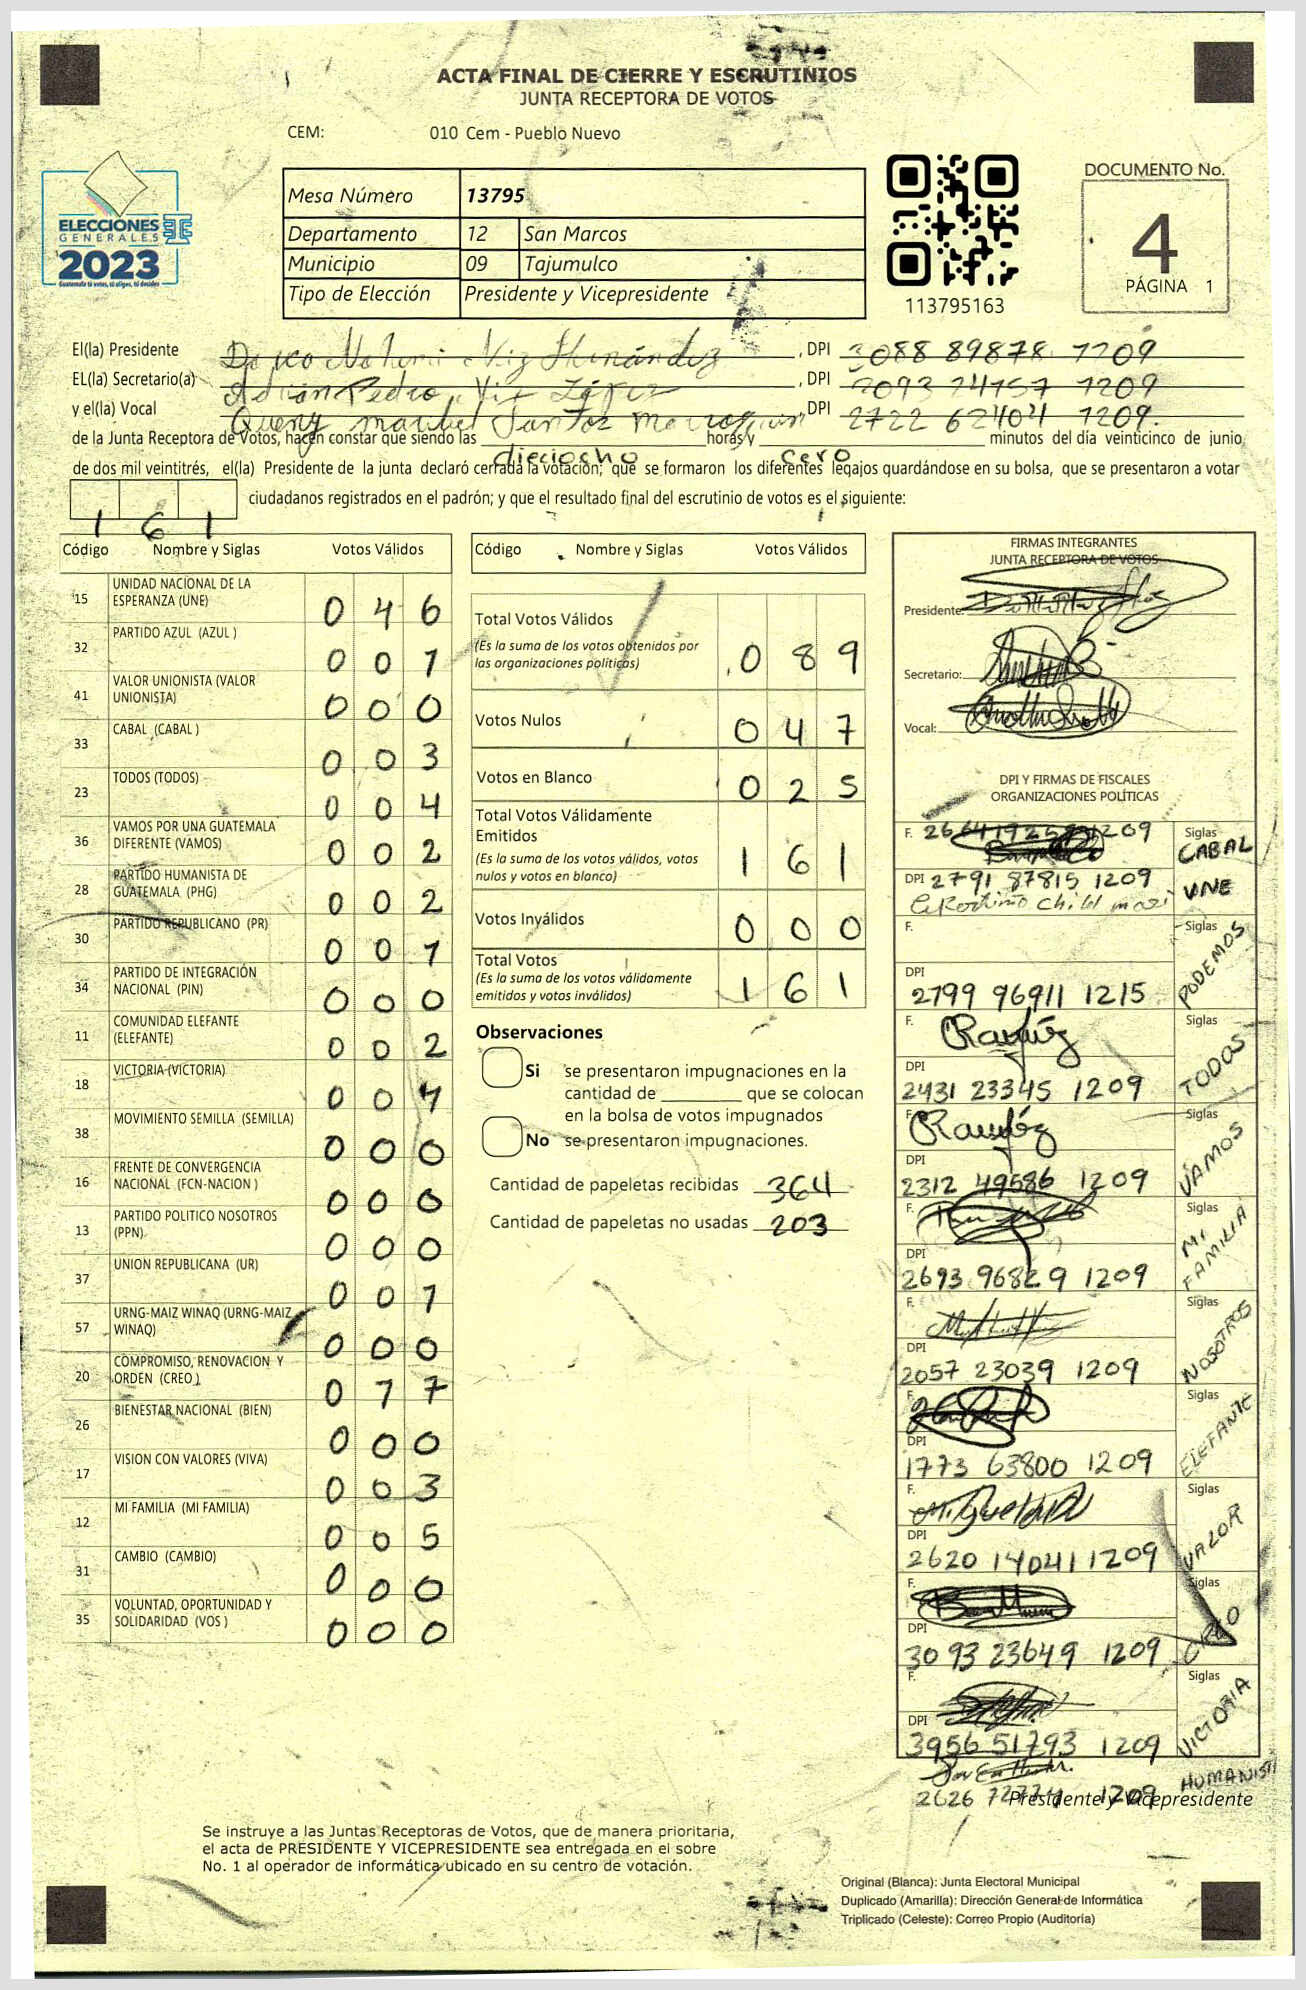 ACTA FINAL DE CIERRE Y ESCRUTINIOS
JUNTA RECEPTORA DE VOTOS
CEM: 010 Cem - Pueblo Nuevo
ELECCIONES
GENERALES
2023
Guatemala tú votas, tú eliges, tú decides
Mesa Número 13795
Departamento 12 San Marcos
Municipio 09 Tajumulco
Tipo de Elección Presidente y Vicepresidente
113795163
DOCUMENTO No.
4
PÁGINA 1
El(la) Presidente , DPI 3088 89878 1209
EL(la) Secretario(a) Adrián Pedro López , DPI 1209
y el(la) Vocal Queny maribel Santos , DPI 2722 62404 1209.
de la Junta Receptora de Votos, hacen constar que siendo las dieciocho horas y cero minutos del día veinticinco de junio
de dos mil veintitrés, el(la) Presidente de la junta declaró cerrada la votación; que se formaron los diferentes legajos guardándose en su bolsa, que se presentaron a votar
161 ciudadanos registrados en el padrón; y que el resultado final del escrutinio de votos es el siguiente:
Código Nombre y Siglas Votos Válidos
15 UNIDAD NACIONAL DE LA ESPERANZA (UNE) 0 4 6
32 PARTIDO AZUL (AZUL ) 0 0 1
41 VALOR UNIONISTA (VALOR UNIONISTA) 0 0 0
33 CABAL (CABAL ) 0 0 3
23 TODOS (TODOS) 0 0 4
36 VAMOS POR UNA GUATEMALA DIFERENTE (VAMOS) 0 0 2
28 PARTIDO HUMANISTA DE GUATEMALA (PHG) 0 0 2
30 PARTIDO REPUBLICANO (PR) 0 0 1
34 PARTIDO DE INTEGRACIÓN NACIONAL (PIN) 0 0 0
11 COMUNIDAD ELEFANTE (ELEFANTE) 0 0 2
18 VICTORIA (VICTORIA) 0 0
38 MOVIMIENTO SEMILLA (SEMILLA) 0 0 0
16 FRENTE DE CONVERGENCIA NACIONAL (FCN-NACION ) 0 0 0
13 PARTIDO POLITICO NOSOTROS (PPN) 0 0 0
37 UNION REPUBLICANA (UR) 0 0 1
57 URNG-MAIZ WINAQ (URNG-MAIZ WINAQ) 0 0 0
20 COMPROMISO, RENOVACION Y ORDEN (CREO ) 0 1 7
26 BIENESTAR NACIONAL (BIEN) 0 0 0
17 VISION CON VALORES (VIVA) 0 0 3
12 MI FAMILIA (MI FAMILIA) 0 0 5
31 CAMBIO (CAMBIO) 0 0 0
35 VOLUNTAD, OPORTUNIDAD Y SOLIDARIDAD (VOS ) 0 0 0
Código Nombre y Siglas Votos Válidos
Total Votos Válidos 0 8 9
(Es la suma de los votos obtenidos por
las organizaciones políticas)
Votos Nulos 0 4 7
Votos en Blanco 0 2 5
Total Votos Válidamente
Emitidos 1 6 1
(Es la suma de los votos válidos, votos
nulos y votos en blanco)
Votos Inválidos 0 0 0
Total Votos 1 6 1
(Es la suma de los votos válidamente
emitidos y votos inválidos)
Observaciones
Si se presentaron impugnaciones en la
cantidad de ________ que se colocan
en la bolsa de votos impugnados
No se presentaron impugnaciones.
Cantidad de papeletas recibidas 364
Cantidad de papeletas no usadas 203
FIRMAS INTEGRANTES
JUNTA RECEPTORA DE VOTOS
Presidente:
Secretario:
Vocal:
DPI Y FIRMAS DE FISCALES
ORGANIZACIONES POLÍTICAS
F. 1209 Siglas CABAL
DPI 2791 87815 1209 UNE
F. Siglas PODEMOS
DPI 2799 96911 1215
F. Siglas TODOS
DPI 2431 23345 1209
F. Siglas VAMOS
DPI 2312 49586 1209
F. Siglas MI FAMILIA
DPI 2693 96829 1209
F. Siglas NOSOTROS
DPI 2057 23039 1209
F. Siglas ELEFANTE
DPI 1773 63800 1209
F. Siglas VALOR
DPI 2620 14041 1209
F. Siglas CREO
DPI 3093 23649 1209
F. Siglas VICTORIA
DPI 3956 51793 1209
HUMANISTA
2626 1209
Presidente y Vicepresidente
Se instruye a las Juntas Receptoras de Votos, que de manera prioritaria,
el acta de PRESIDENTE Y VICEPRESIDENTE sea entregada en el sobre
No. 1 al operador de informática ubicado en su centro de votación.
Original (Blanca): Junta Electoral Municipal
Duplicado (Amarilla): Dirección General de Informática
Triplicado (Celeste): Correo Propio (Auditoría)